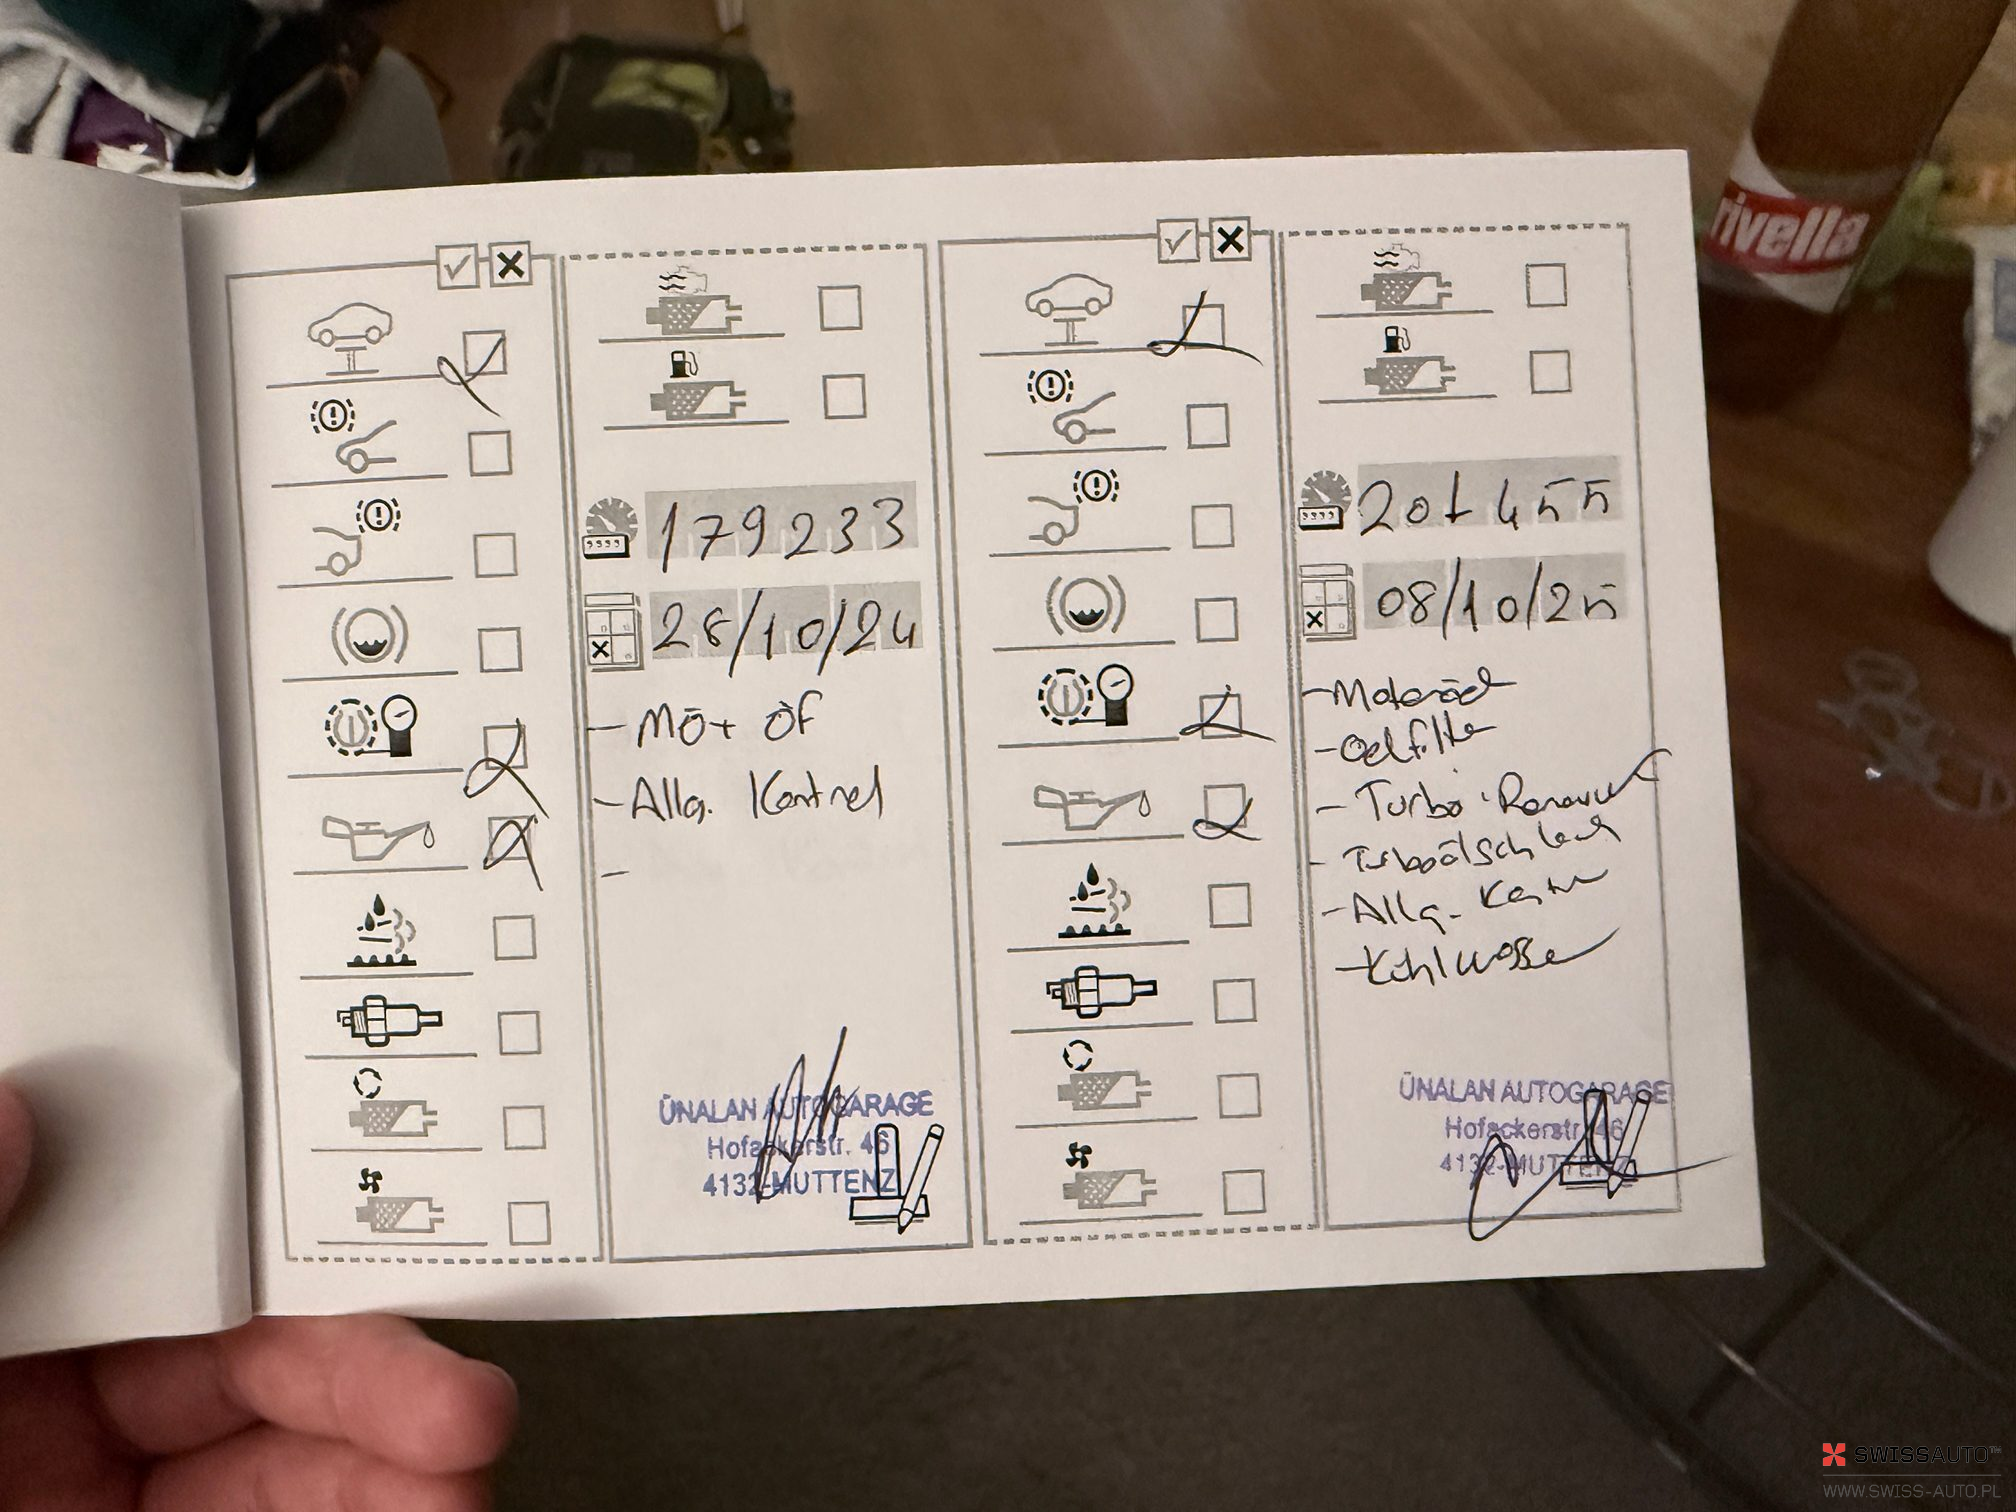 rivella
179233
28/10/24
- Mö + öf
- Allg. Kontrol
-
ÜNALAN AUTOGARAGE
Hofackerstr. 46
4132-MUTTENZ
201455
08/10/25
- Motoröl
- Oelfilter
- Turbo
- Turboölschlauch
- Allg. Kontr
- Kühlwasser
ÜNALAN AUTOGARAGE
Hofackerstr. 46
4132-MUTTENZ
SWISSAUTO™
WWW.SWISS-AUTO.PL